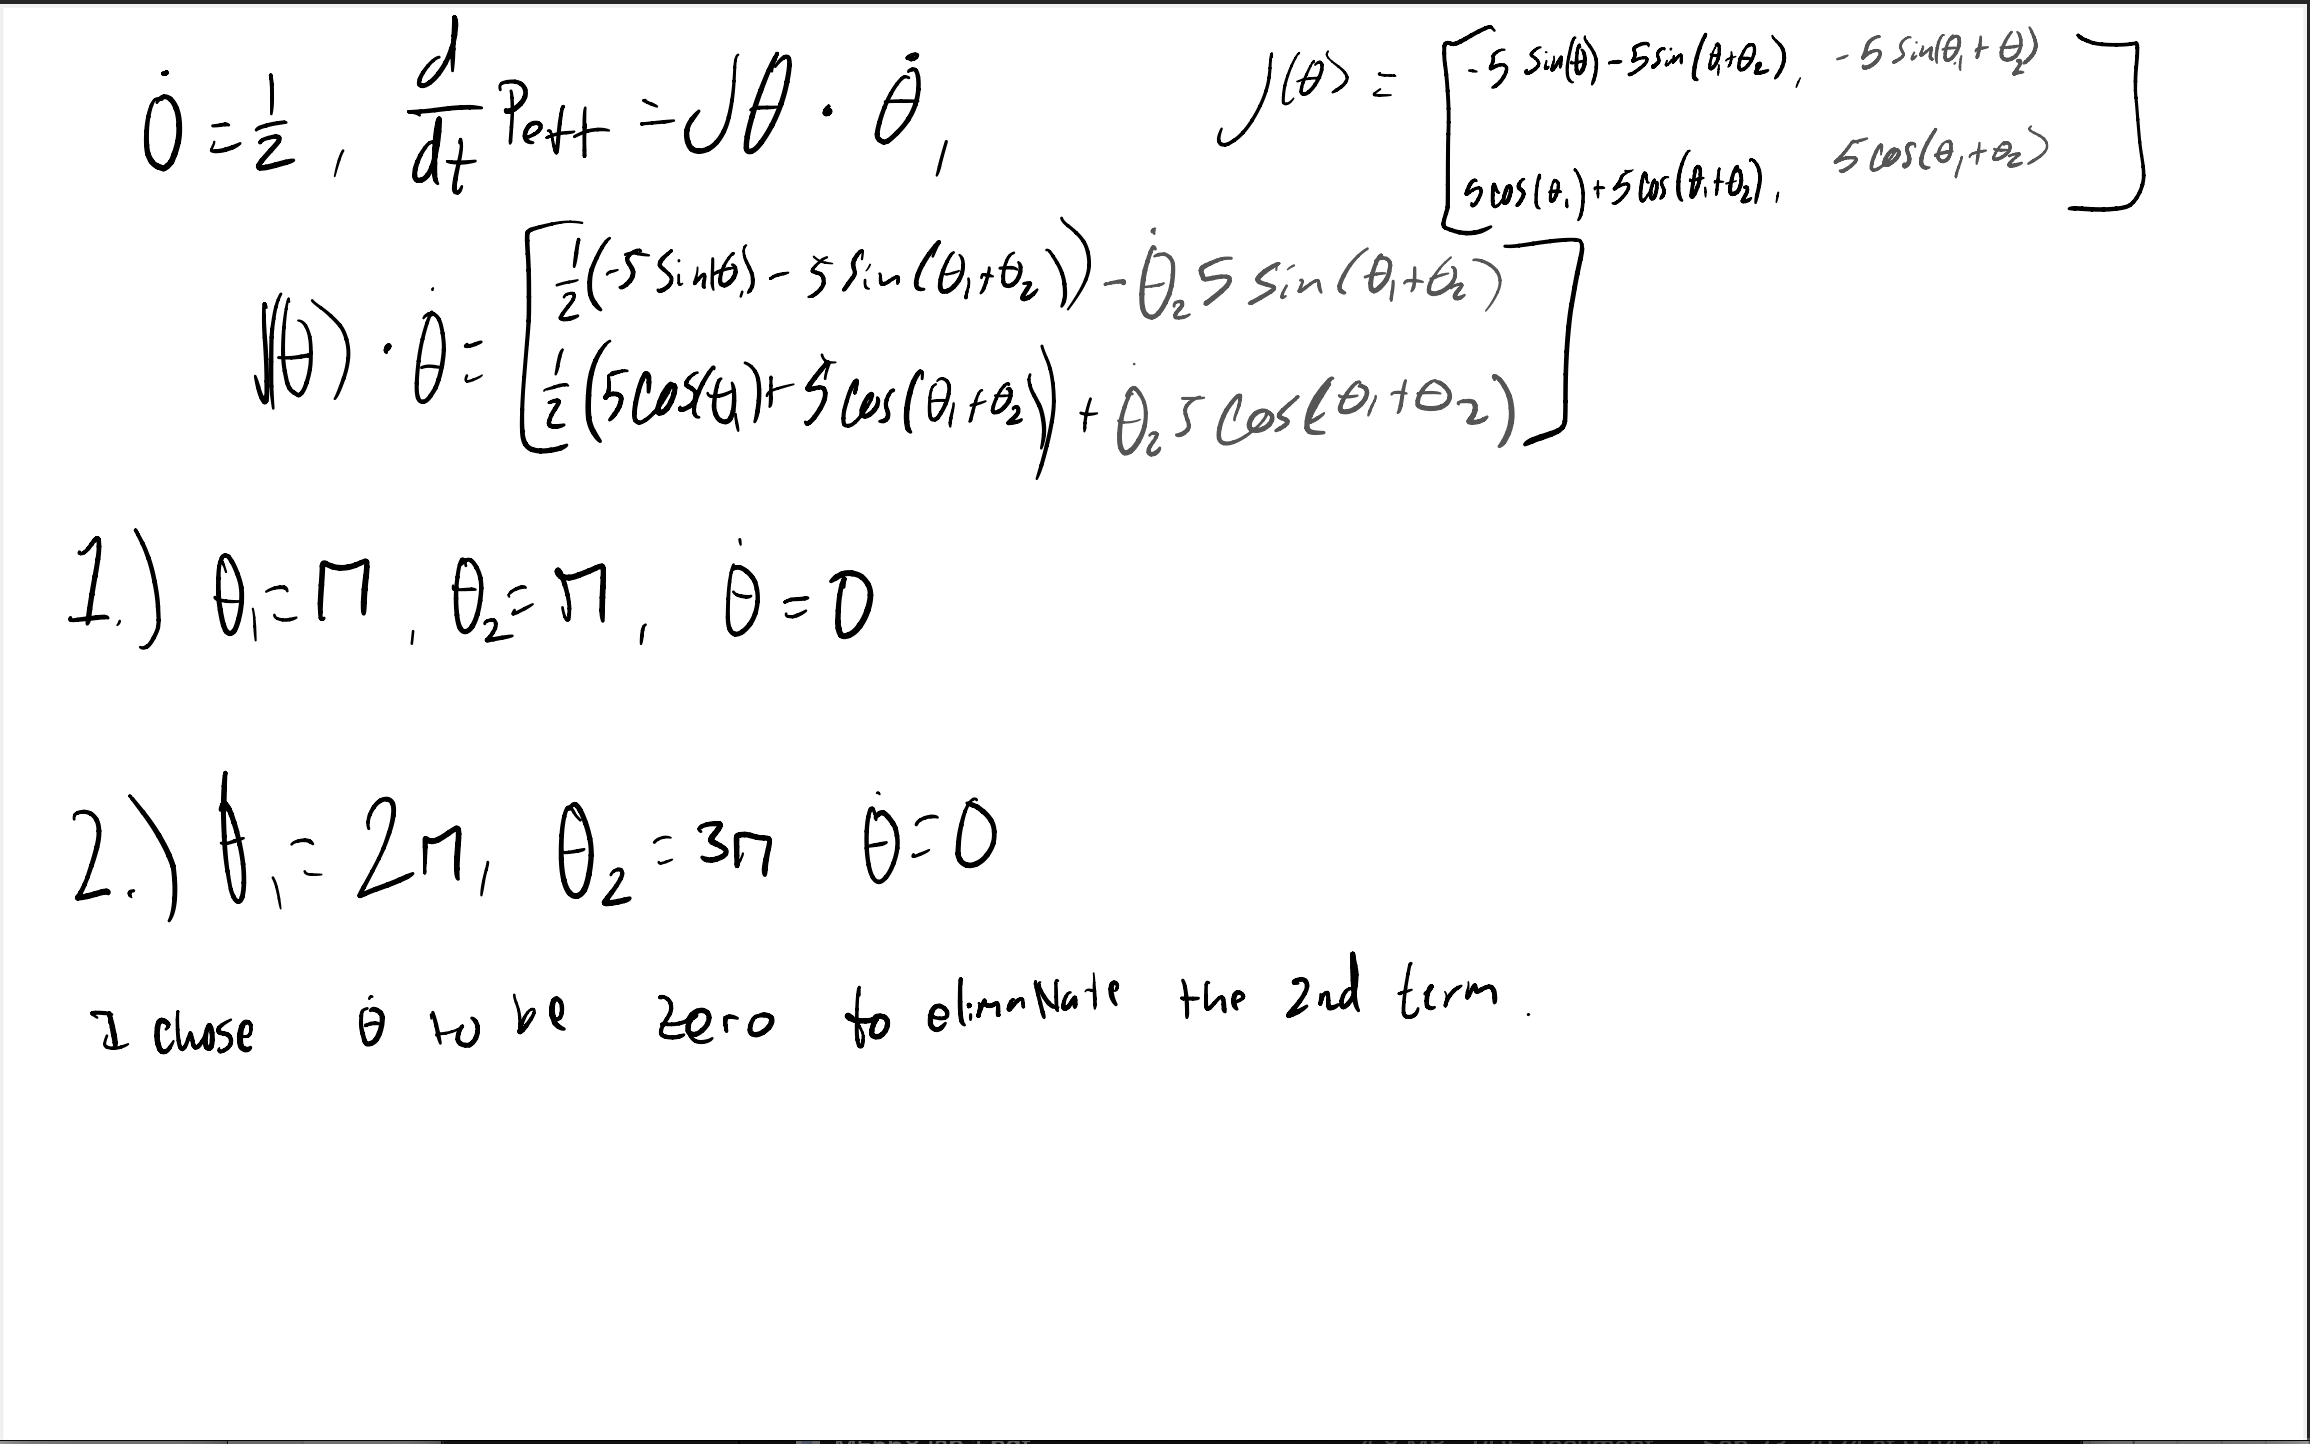 θ̇ = 1/2, d/dt Peff = Jθ · θ̇, J(θ) = [-5 sin(θ) - 5 sin(θ₁+θ₂), -5 sin(θ₁+θ₂)
5 cos(θ₁) + 5 cos(θ₁+θ₂), 5 cos(θ₁+θ₂)]
J(θ) · θ̇ = [1/2(-5 sin(θ₁) - 5 sin(θ₁+θ₂)) - θ̇₂ 5 sin(θ₁+θ₂)
1/2(5 cos(θ₁) + 5 cos(θ₁+θ₂)) + θ̇₂ 5 cos(θ₁+θ₂)]
1.) θ₁ = π, θ₂ = π, θ̇ = 0
2.) θ₁ = 2π, θ₂ = 3π θ̇ = 0
I chose θ̇ to be zero to elimnNate the 2nd term.